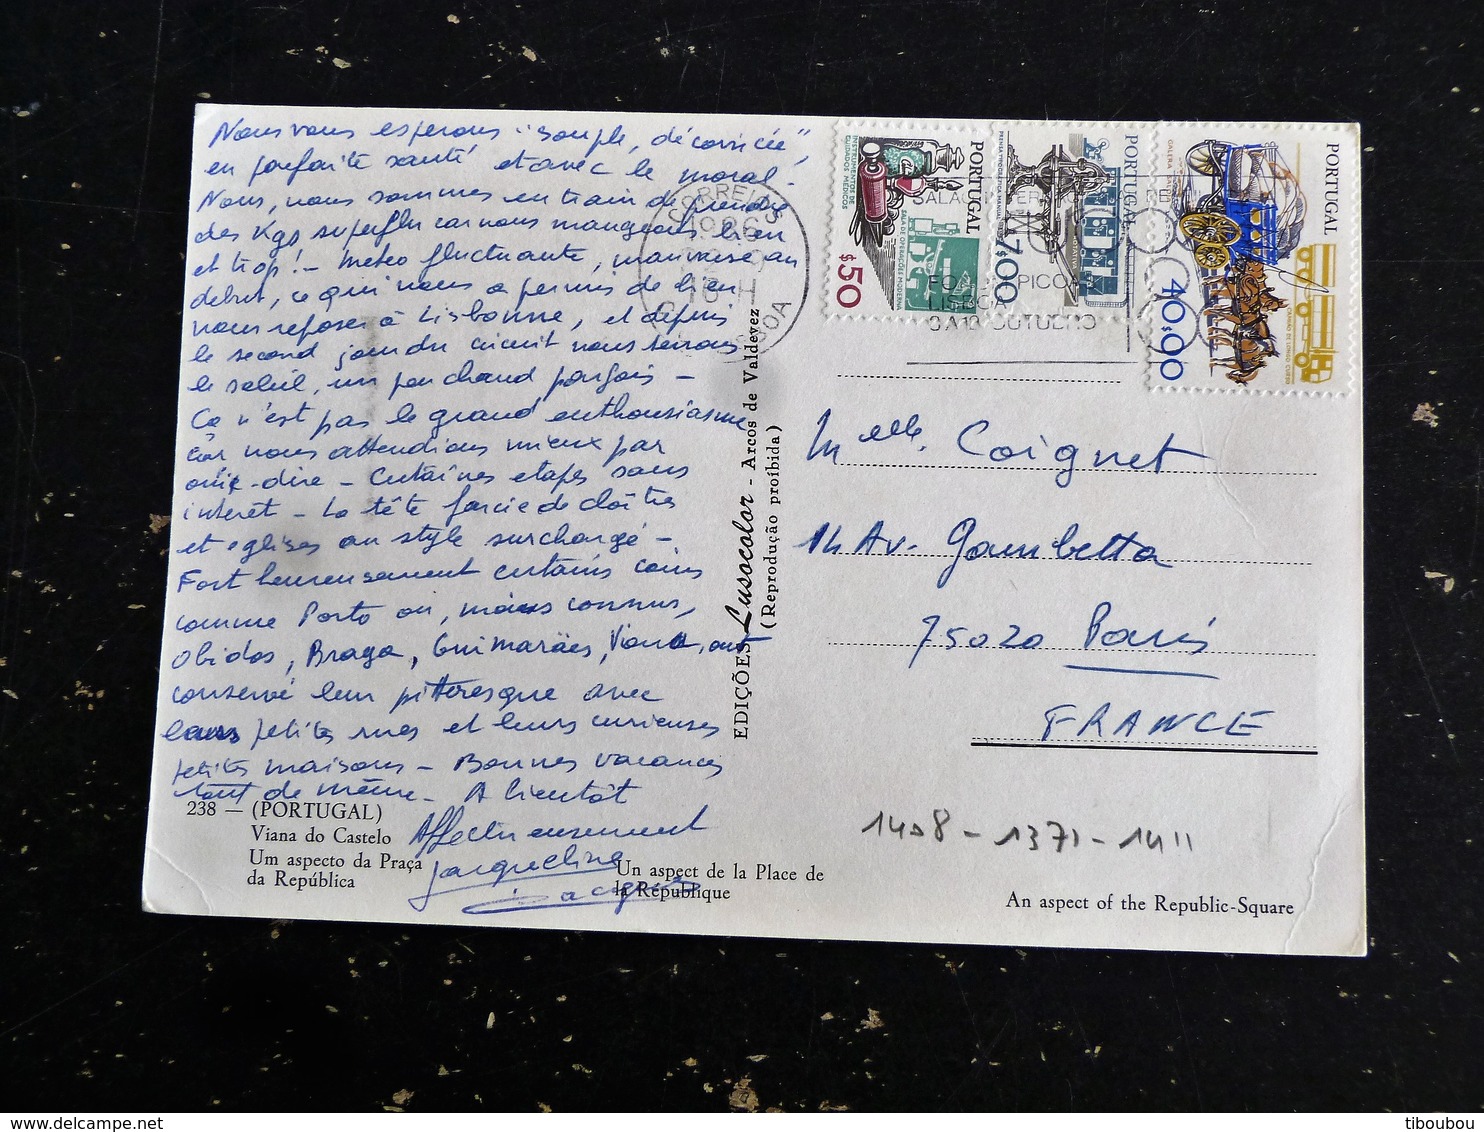 Nous vous espérons "souple, décoincée",
en parfaite santé et avec le moral.
Nous, nous sommes en train de prendre
des Kgs superflu car nous mangeons bien
et trop! - Météo fluctuante, mauvaise au
début, ce qui nous a permis de bien
nous reposer à Lisbonne, et depuis
le second jour du circuit nous
le soleil, un peu chaud parfois -
Ca n'est pas le grand enthousiasme
car nous attendions mieux par
ouïe-dire - Certaines étapes sans
intérêt - La tête farcie de cloîtres
et églises au style surchargé -
Fort heureusement certains coins
comme Porto ou, moins connus,
Obidos, Braga, Guimarães, Viana, ont
conservé leur pittoresque avec
leurs petites rues et leurs curieuses
petites maisons - Bonnes vacances
tout de même - A bientôt
Affectueusement
Jacqueline
Jacques
238 - (PORTUGAL)
Viana do Castelo
Um aspecto da Praça
da República
Un aspect de la Place de
la Republique
An aspect of the Republic-Square
EDIÇÕES Lusocolor - Arcos de Valdevez
(Reprodução proibida)
CORREIOS
1986
16 H
LISBOA
LISBOA
OUTUBRO
INSTRUMENTOS DE
CUIDADOS MÉDICOS
SALA DE OPERAÇÕES MODERNA
PORTUGAL
$50
PRENSA TIPOGRÁFICA MANUAL
PORTUGAL
7$00
GALERA
PORTUGAL
40$00
Melle. Coignet
14 Av. Gambetta
75020 Paris
FRANCE
1408 - 1371 - 1411
tiboubou